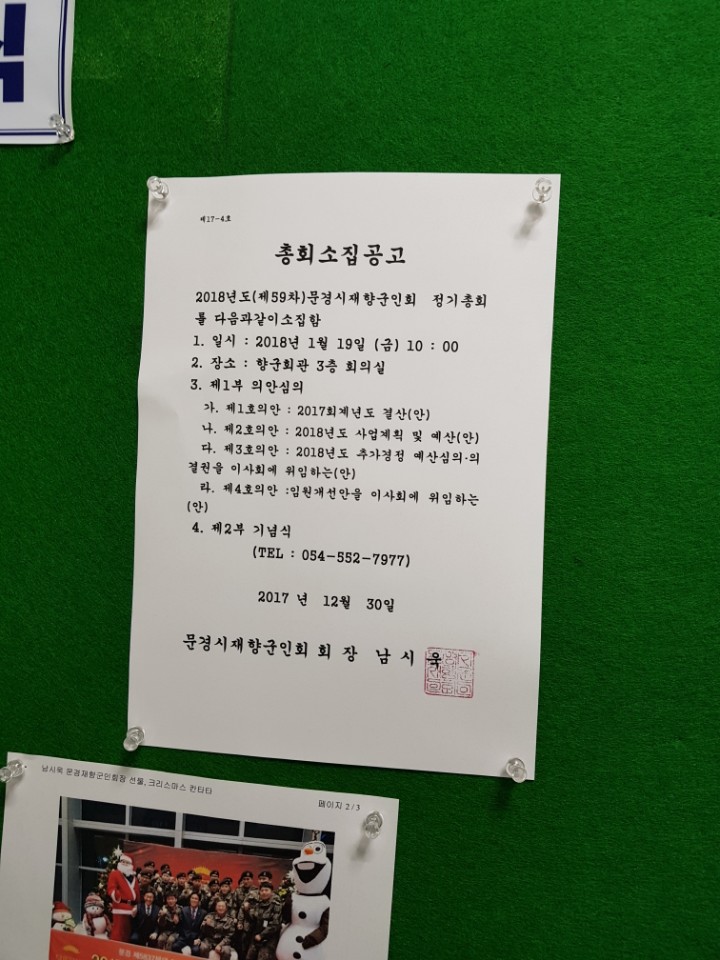 식
제17-4호
총회소집공고
2018년도(제59차)문경시재향군인회 정기총회
를 다음과같이소집함
1. 일시 : 2018년 1월 19일 (금) 10 : 00
2. 장소 : 향군회관 3층 회의실
3. 제1부 의안심의
가. 제1호의안 : 2017회계년도 결산(안)
나. 제2호의안 : 2018년도 사업계획 및 예산(안)
다. 제3호의안 : 2018년도 추가경정 예산심의·의
결권을 이사회에 위임하는(안)
라. 제4호의안 :임원개선안을 이사회에 위임하는
(안)
4. 제2부 기념식
(TEL : 054-552-7977)
2017 년 12월 30일
문경시재향군인회 회 장 남 시 욱
남시욱 문경재향군인회장 선물, 크리스마스 칸타타
페이지 2 / 3